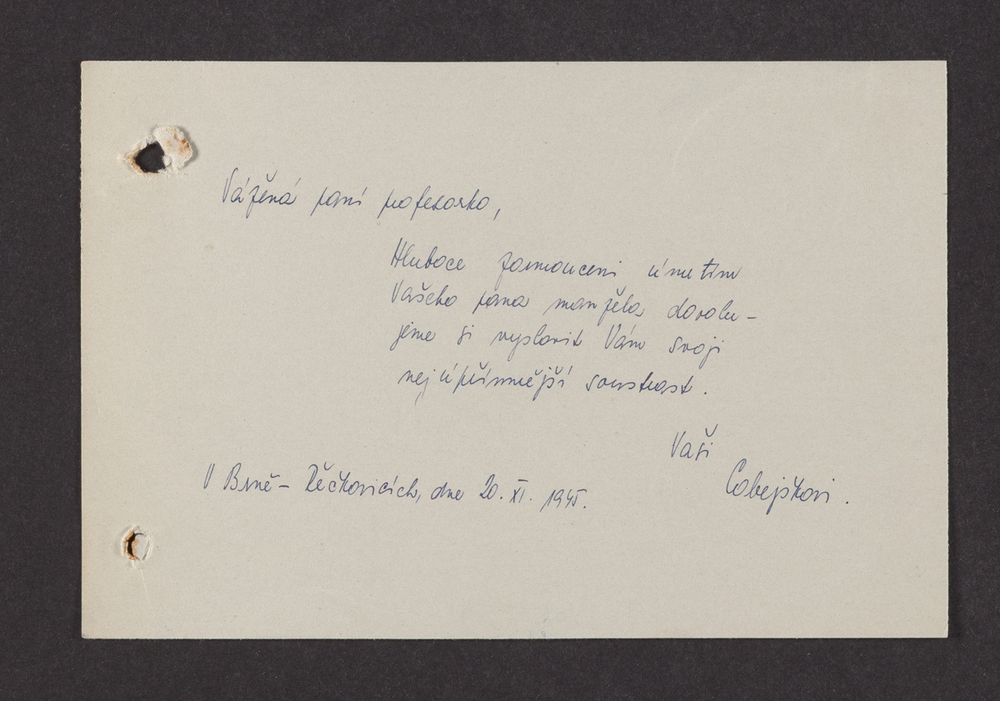 Vážená paní profesorko,
Hluboce zarmouceni úmrtím
Vašeho pana manžela dovolu-
jeme si vyslovit Vám svoji
nejúpřímnější soustrast.
Vaši
Cobejškovi.
V Brně - Řečkovicích, dne 20. XI. 1945.